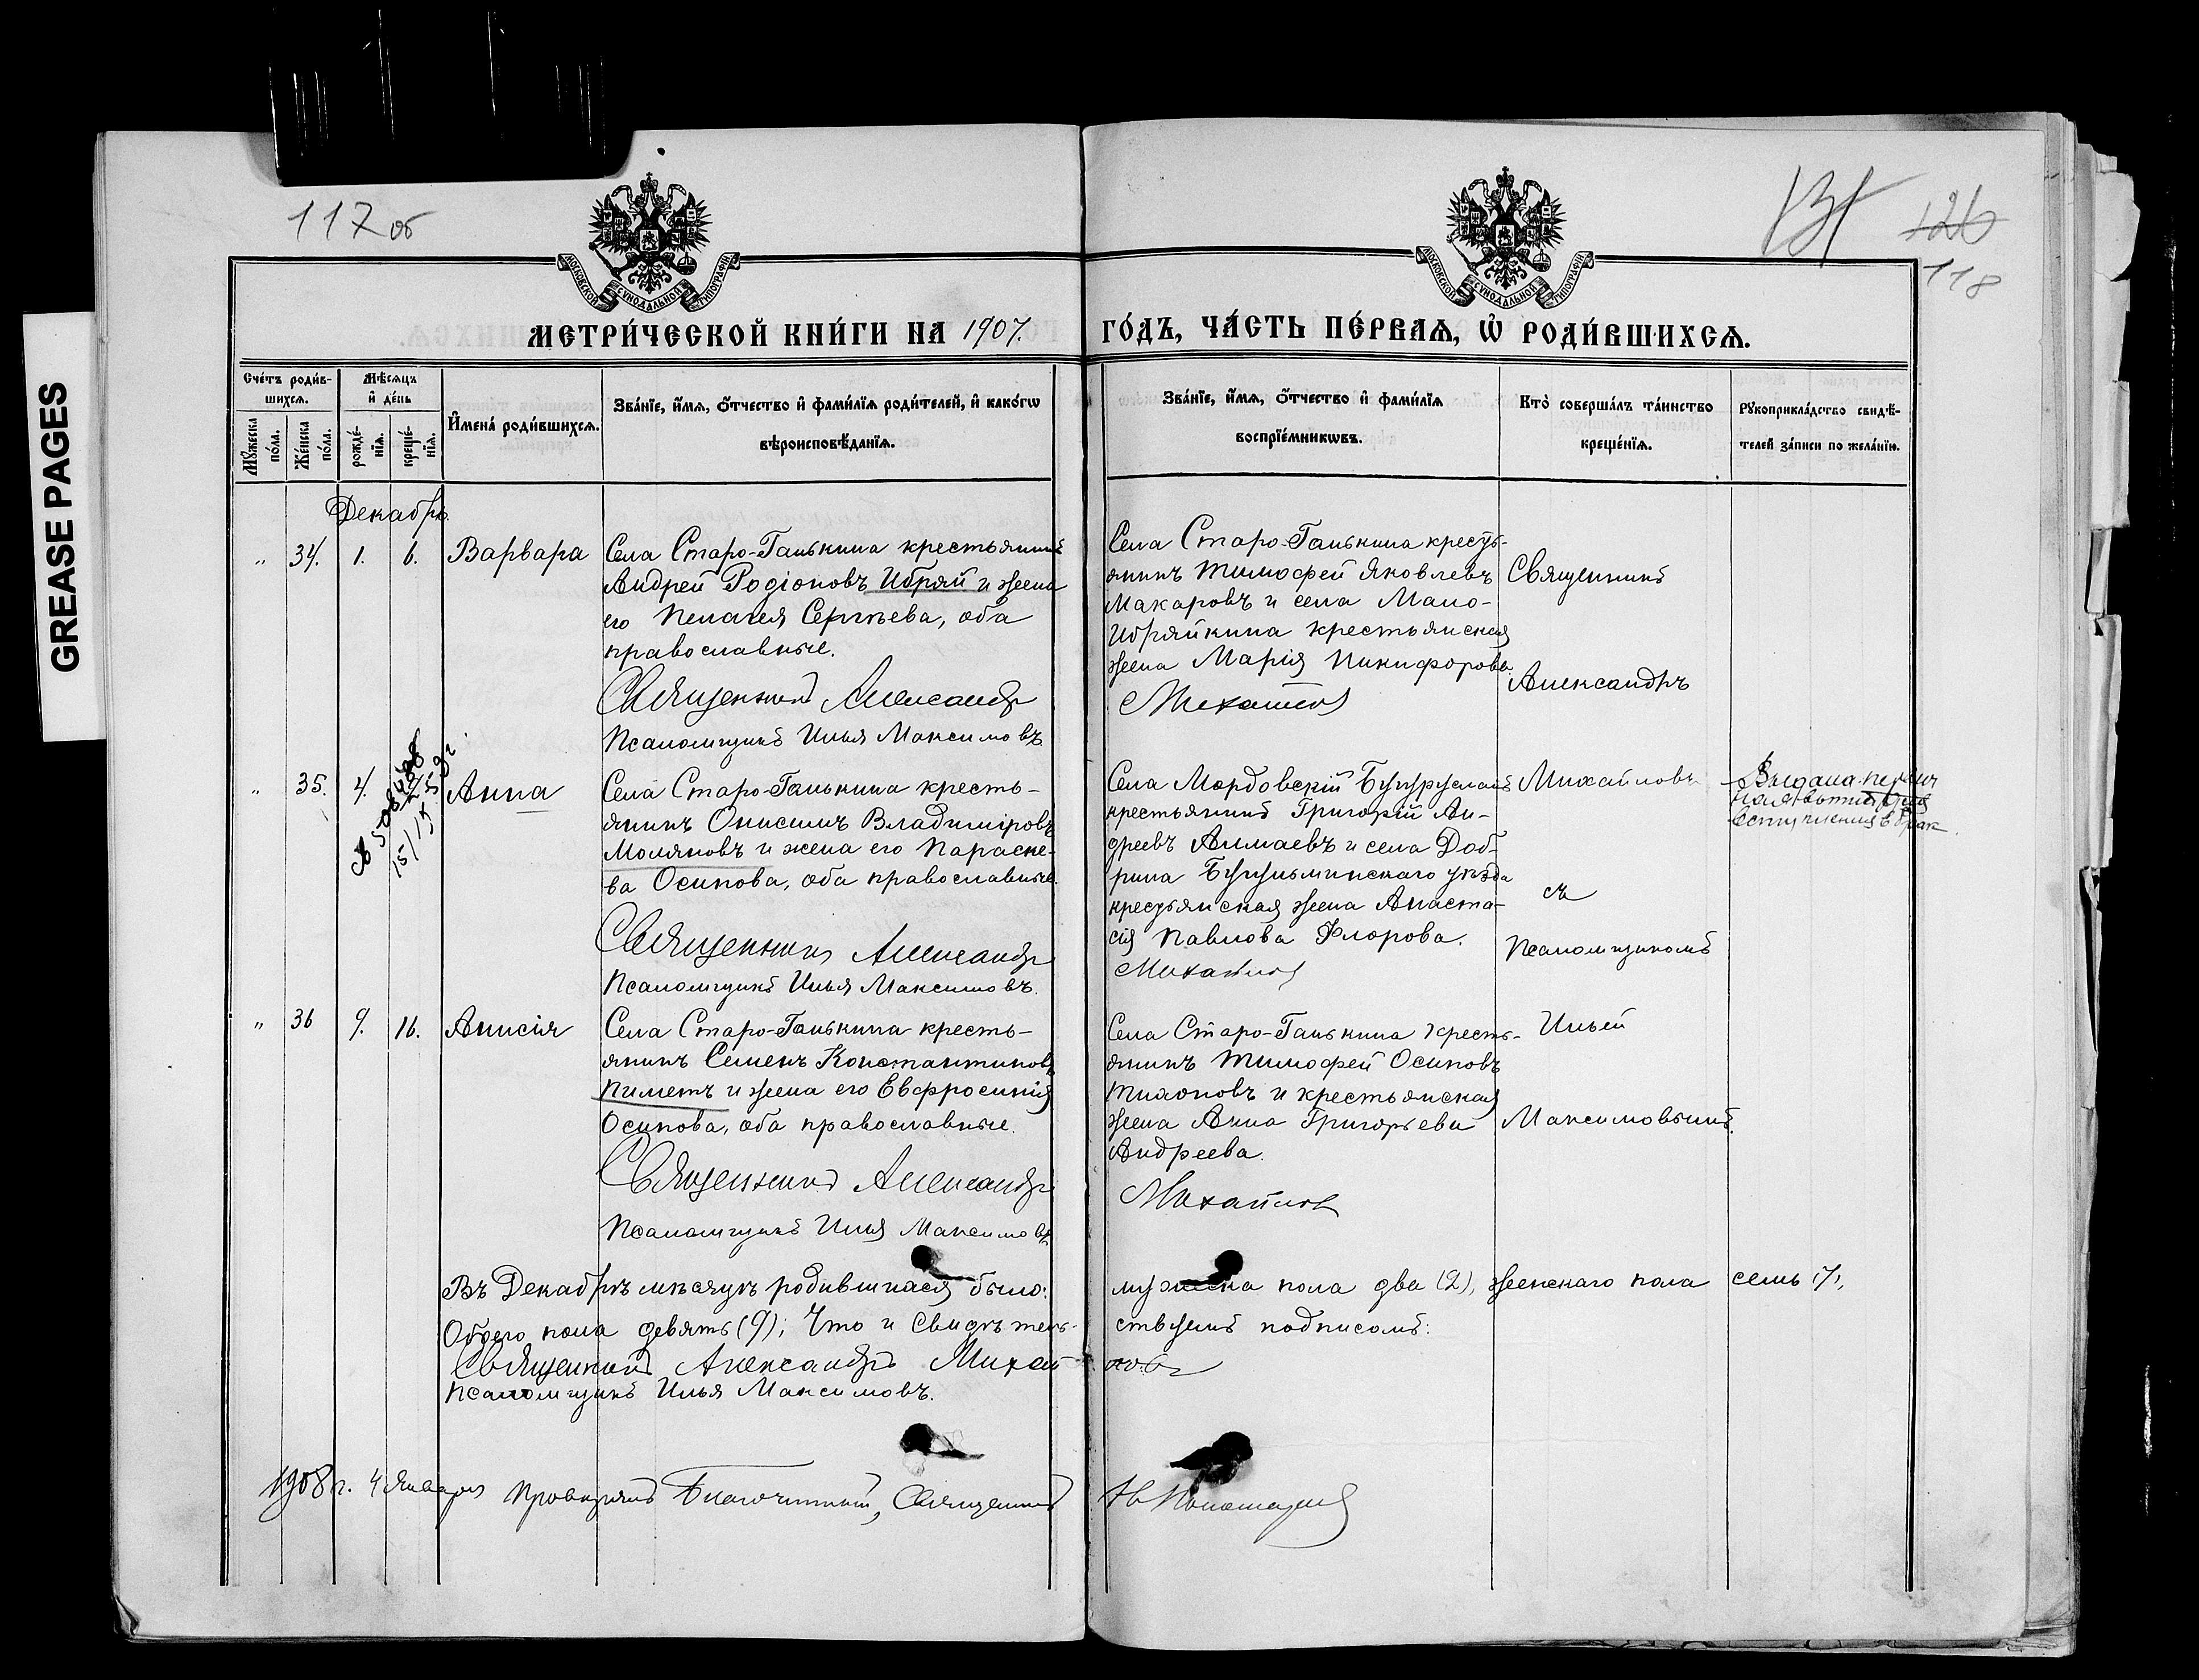 GREASE PAGES
117 об
126
118
МОСКОВСКОЙ СѴНОДАЛЬНОЙ ТИПОГРАФІИ
МОСКОВСКОЙ СѴНОДАЛЬНОЙ ТИПОГРАФІИ
МЕТРИ́ЧЕСКОЙ КНИ́ГИ НА 1907. ГО́ДЪ, ЧА́СТЬ ПЕ́РВАѦ, Ѽ РОДИ́ВШИХСѦ.
Сче́тъ роди́в-
шихсѧ.
Мꙋ́жеска
по́ла.
Же́нска
по́ла.
Мѣ́сѧцъ
и҆ де́нь
рожде́-
нїѧ.
креще́-
нїѧ.
И҆мена̀ роди́вшихсѧ.
Зва́нїе, и҆́мѧ, ѻ҆́тчество и҆ фами́лїѧ роди́телей, и҆ како́гѡ
вѣроисповѣ́данїѧ.
Зва́нїе, и҆́мѧ, ѻ҆́тчество и҆ фами́лїѧ
воспрїе́мникѡвъ.
Кто̀ соверша́лъ та́инство
креще́нїѧ.
Рꙋкоприкла́дство свидѣ́-
телей за́писи по жела́нїю.
Декабрь.
„ 34. 1. 6. Варвара
Села Старо-Ганькина крестьянинъ
Андрей Родіоновъ Ибряй и жена
его Пелагея Сергѣева, оба
православные.
Священникъ Александръ
Псаломщикъ Илья Максимовъ
Села Старо-Ганькина кресть-
янинъ Тимофей Яковлевъ
Макаровъ и села Мало-
Ибряйкина крестьянская
жена Марія Никифорова
Михайловъ
Священникъ
Александръ
„ 35. 4. Анна
Села Старо-Ганькина кресть-
янинъ Онисимъ Владиміровъ
Моляновъ и жена его Параске-
ва Осипова, оба православные.
Священникъ Александръ
Псаломщикъ Илья Максимовъ.
Села Мордовскій Бугурусланъ
крестьянинъ Григорій Ан-
дреевъ Алмаевъ и села Доб-
рина Бугульминскаго уѣзда
крестьянская жена Анаста-
сія Павлова Флорова.
Михайловъ
Михайловъ
съ
Псаломщикомъ
Выдана
вступления в брак.
„ 36 9. 16. Анисія
Села Старо-Ганькина кресть-
янинъ Семенъ Константиновъ
Пиметъ и жена его Евфросинія
Осипова, оба православные.
Священникъ Александръ
Псаломщикъ Илья Максимовъ
Села Старо-Ганькина кресть-
янинъ Тимофей Осиповъ
Тихоновъ и крестьянская
жена Анна Григорьева
Андреева.
Михайловъ
Ильей
Максимовымъ.
Въ Декабрѣ мѣсяцѣ родившихся было: мужеска пола два (2), женскаго пола семь (7),
Обоего пола девять (9); Что и свидѣтель- ствуемъ подписомъ:
Священникъ Александръ Михай- ловъ
Псаломщикъ Илья Максимовъ.
1908 г. 4 Января провѣрялъ Благочинный, Священникъ